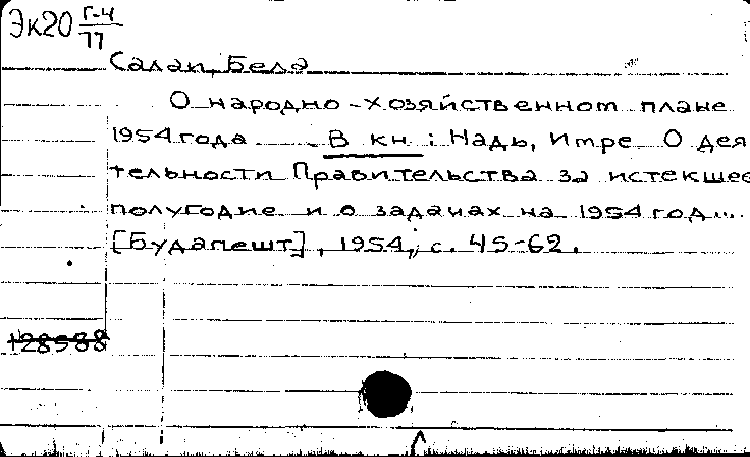 Эк20 Г-4
77
Салаи, Бела
О народно-хозяйственном плане
1954 года В кн: Надь, Имре О дея
тельности Правительства за истекшее
полугодие и о задачах на 1954 год...
[Будапешт], 1954, с. 45-62.
128588